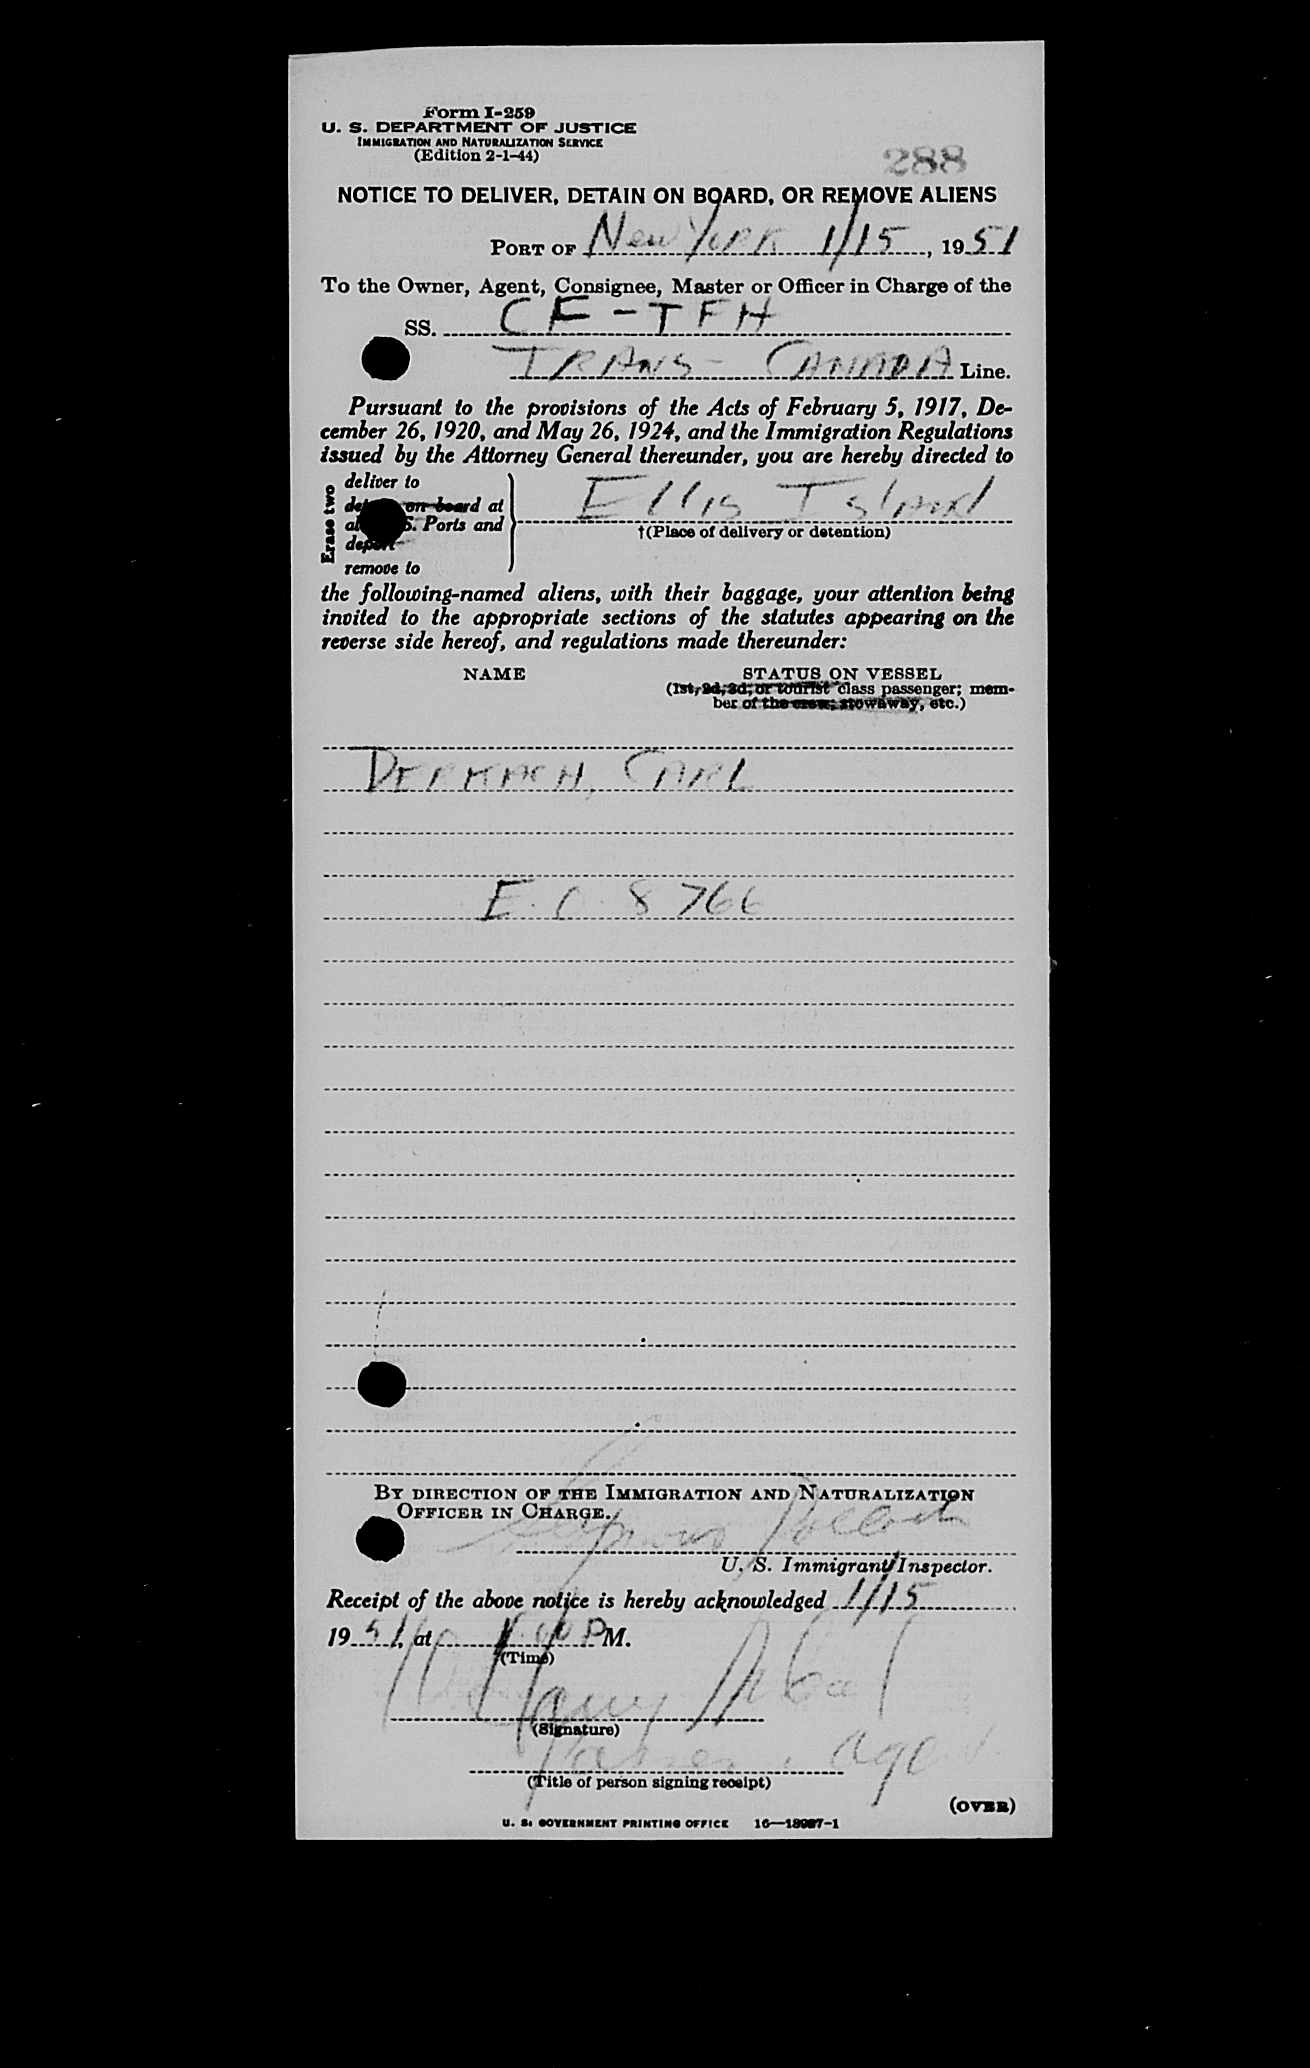 Form I-259
U. S. DEPARTMENT OF JUSTICE
IMMIGRATION AND NATURALIZATION SERVICE
(Edition 2-1-44)
288
NOTICE TO DELIVER, DETAIN ON BOARD, OR REMOVE ALIENS
PORT OF New York 1/15, 1951
To the Owner, Agent, Consignee, Master or Officer in Charge of the
SS. CF-TFH
TRANS-CANADA Line.
Pursuant to the provisions of the Acts of February 5, 1917, De-
cember 26, 1920, and May 26, 1924, and the Immigration Regulations
issued by the Attorney General thereunder, you are hereby directed to
Erase two
deliver to
on board at
S. Ports and
deport
remove to
Ellis Island
†(Place of delivery or detention)
the following-named aliens, with their baggage, your attention being
invited to the appropriate sections of the statutes appearing on the
reverse side hereof, and regulations made thereunder:
NAME STATUS ON VESSEL
(1st, 2d, 3d, or tourist class passenger; mem-
ber of the crew, stowaway, etc.)
DERKACH, CARL
E. C. 8766
BY DIRECTION OF THE IMMIGRATION AND NATURALIZATION
OFFICER IN CHARGE.
U. S. Immigrant Inspector.
Receipt of the above notice is hereby acknowledged 1/15
1951, at PM.
(Time)
Harry
(Signature)
Agent
(Title of person signing receipt)
(OVER)
U. S. GOVERNMENT PRINTING OFFICE 16—18987-1